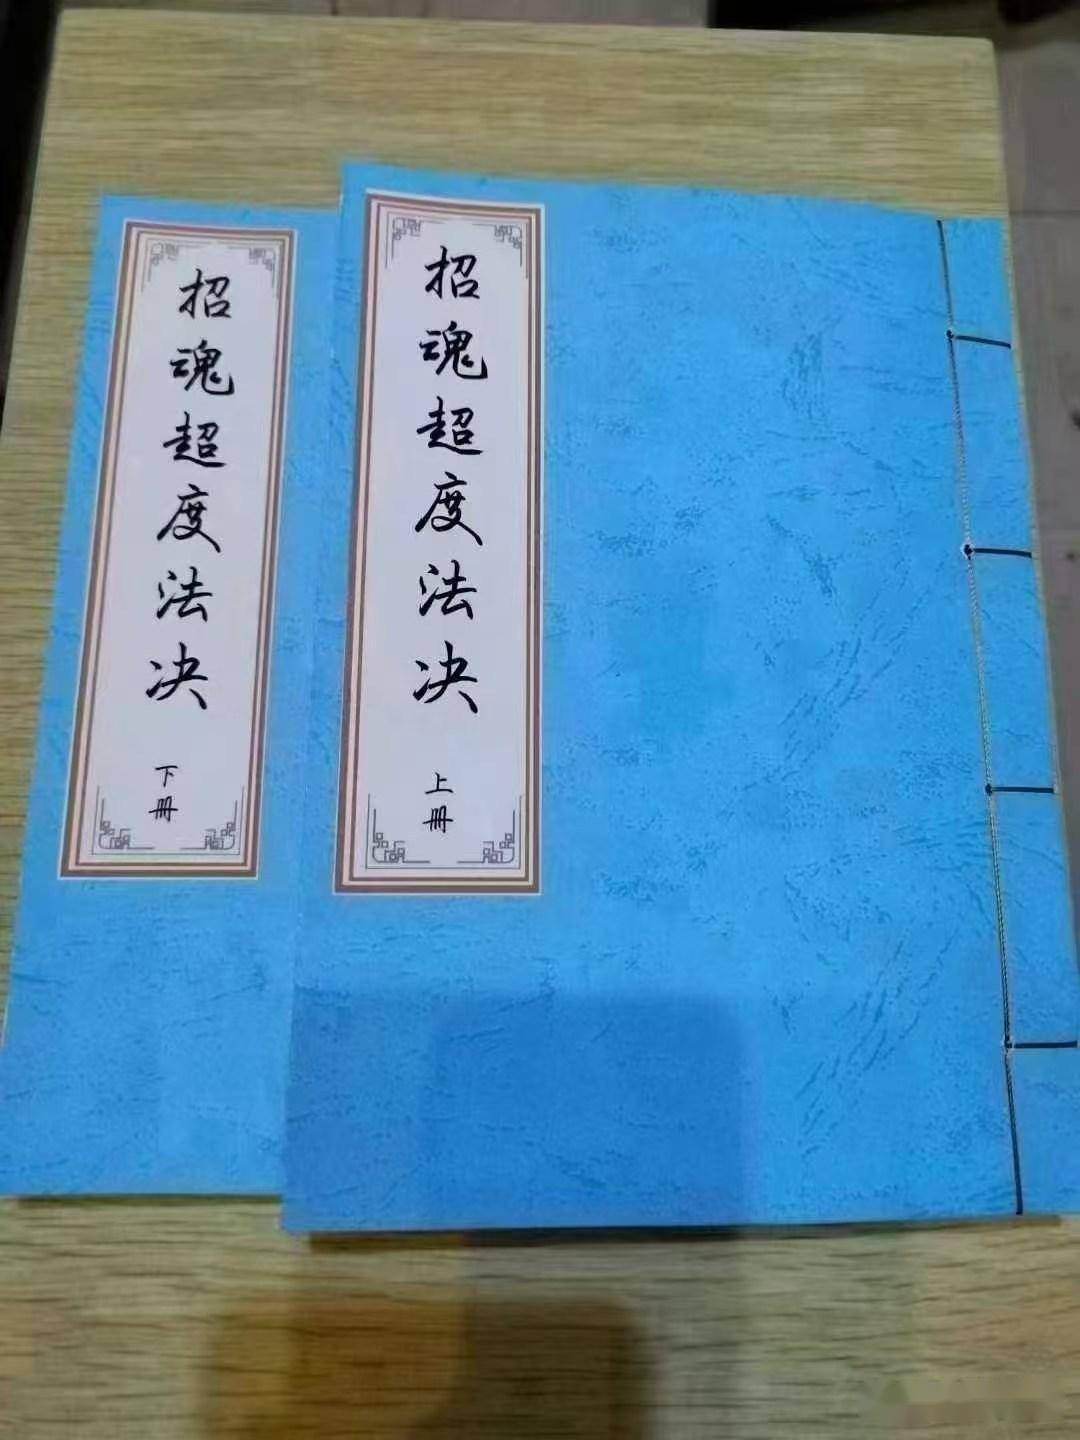 招魂超度法决
上册
招魂超度法决
下册